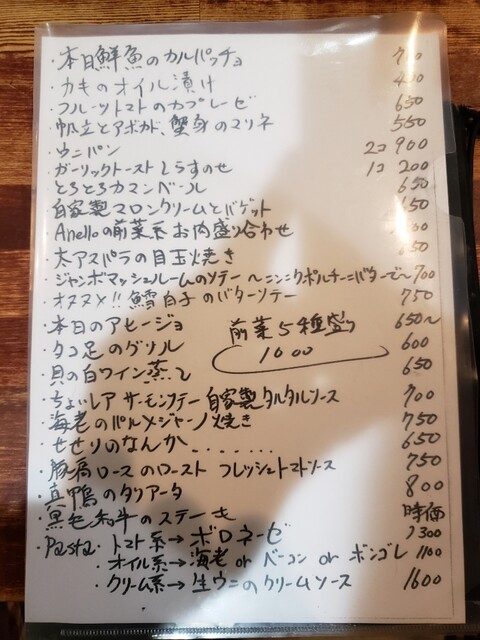 ・本日鮮魚のカルパッチョ 700
・カキのオイル漬け 400
・フルーツトマトのカプレーゼ 650
・帆立とアボカド、蟹身のマリネ 550
・ウニパン 2コ 900
・ガーリックトーストしらすのせ 1コ 200
・とろとろカマンベール 650
・自家製マロンクリームとバゲット 650
・Anelloの前菜系お肉盛り合わせ
・太アスパラの目玉焼き 650
・ジャンボマッシュルームのソテー 〜ニンニクポルチーニバターで〜 700
・オススメ!! 鱈白子のバターソテー 750
・本日のアヒージョ 650〜
・タコ足のグリル 600
・貝の白ワイン蒸し 650
前菜5種盛り
1600
・ちょいレアサーモンソテー 自家製タルタルソース 700
・海老のパルメジャーノ焼き 750
・せせりのなんか . . . . . . . 650
・豚肩ロースのロースト フレッシュトマトソース 750
・真鴨のタリアータ 800
・黒毛和牛のステーキ 時価
・Pasta・トマト系→ボロネーゼ 1300
・オイル系→海老 or ベーコン or ボンゴレ 1100
・クリーム系→生ウニのクリームソース 1600